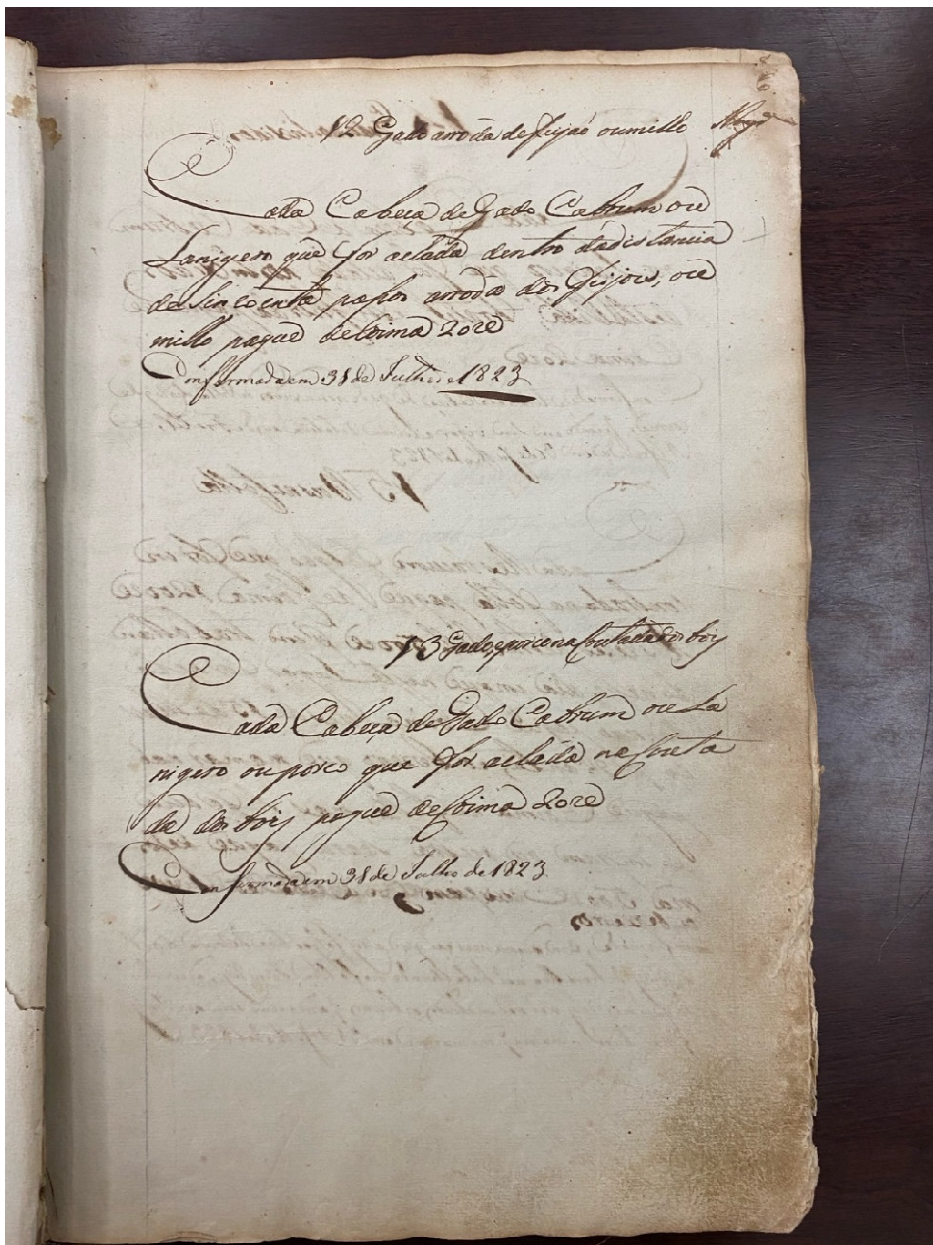 12 Gado arroda de feijaõ oumilho
Cada Cabeça de Gado Cabrum ou
Lanigero que for aclada dentro dadistancia
de sincoenta passos arroda dos feijoes, ou
milho pague de Coima 20 re
Confirmada em 31 de Julho de 1823
13 Gado, eporco na Coutada dos bois
Cada Cabeça de Gado Cabrum ou La
nigero ou porco que for aclada na Couta
da dos bois pague de Coima 20 re
Confirmada em 31 de Julho de 1823